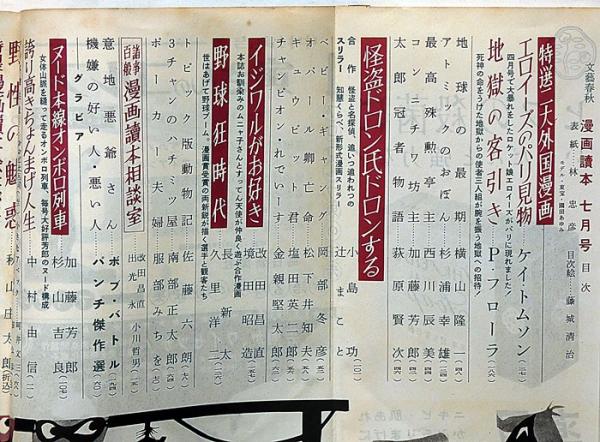 文藝春秋
漫画讀本 七月号 目次
表紙・林忠彦
目次絵・藤城清治
特選二大外国漫画
エロイーズのパリ見物 ケイ・トムソン
四月号で大暴れをしたロケット娘エロイーズがパリに現れました!
地獄の客引き P・フローラ
死神の命をうけた地獄からの使者三人組が腕を振う地獄への招待
地球の最期 横山隆一
アトミックのおぼん 杉浦幸雄
最高殊勲亭主 西川辰美
コンニチワ坊主
太郎冠者物語 萩原賢次
怪盗ドロン氏ドロンする
合作スリラー
怪盗と名探偵、追いつ追われつの知慧くらべ、新形式漫画スリラー
小島功
辻まこと
ベビー・ギャング 岡部冬彦
オバル卿亡命 松下井知夫
キューピット君 塩田英二郎
チャンピオン・れでいー 金親堅太郎
イジワルがお好き
本誌お馴染みのムニャ子さんとすってん天使が仲良く遊ぶ合作漫画
境田昭造
野球狂時代
世はあげて野球ブーム、漫画賞受賞の両新鋭が描く選手と観客たち
長新太
久里洋二
トピック版動物記 佐藤六朗
3チャンのハチミツ屋 南部正太郎
ポーカー夫婦 岡部みちを
諸事百般 漫画讀本相談室
改田昌直
出光永
小川哲男
意地悪爺さん ボブ・バトル
機嫌の好い人・悪い人 パンチ傑作選
グラビア
ヌード本線オンボロ列車
女体山脈を縫って走るオンボロ列車、毎号大好評芳郎のヌード構成
加藤芳郎
杉山吉良
誇り高きちょんまげ人生 中村由信
野性の魅惑 秋山庄太郎